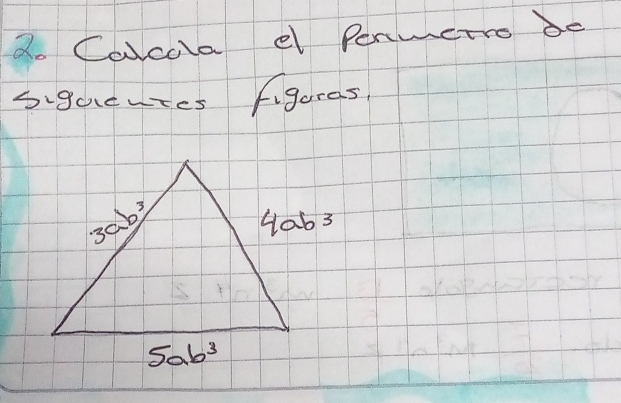 2. Calcula el Perimetro de
siguientes figuras,
3ab³
4ab³
5ab³